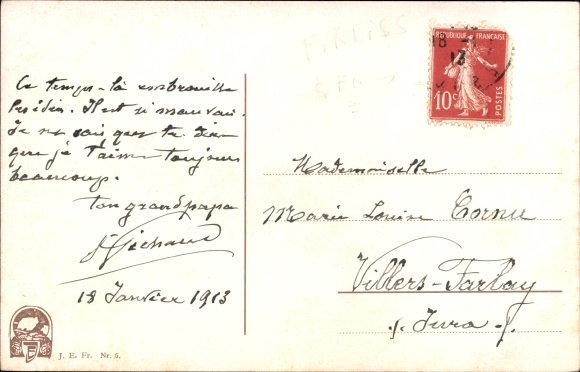 Ce temps-là embrouille
les idées. Il est si mauvais.
Je ne sais que te dire
que je t'aime toujours
beaucoup.
ton grand papa
18 Janvier 1913
J. E. Fr. Nr. 5.
REPUBLIQUE FRANÇAISE
10c
POSTES
18
13
Mademoiselle
Marie Louise Cornu
Villers-Farlay
Jura